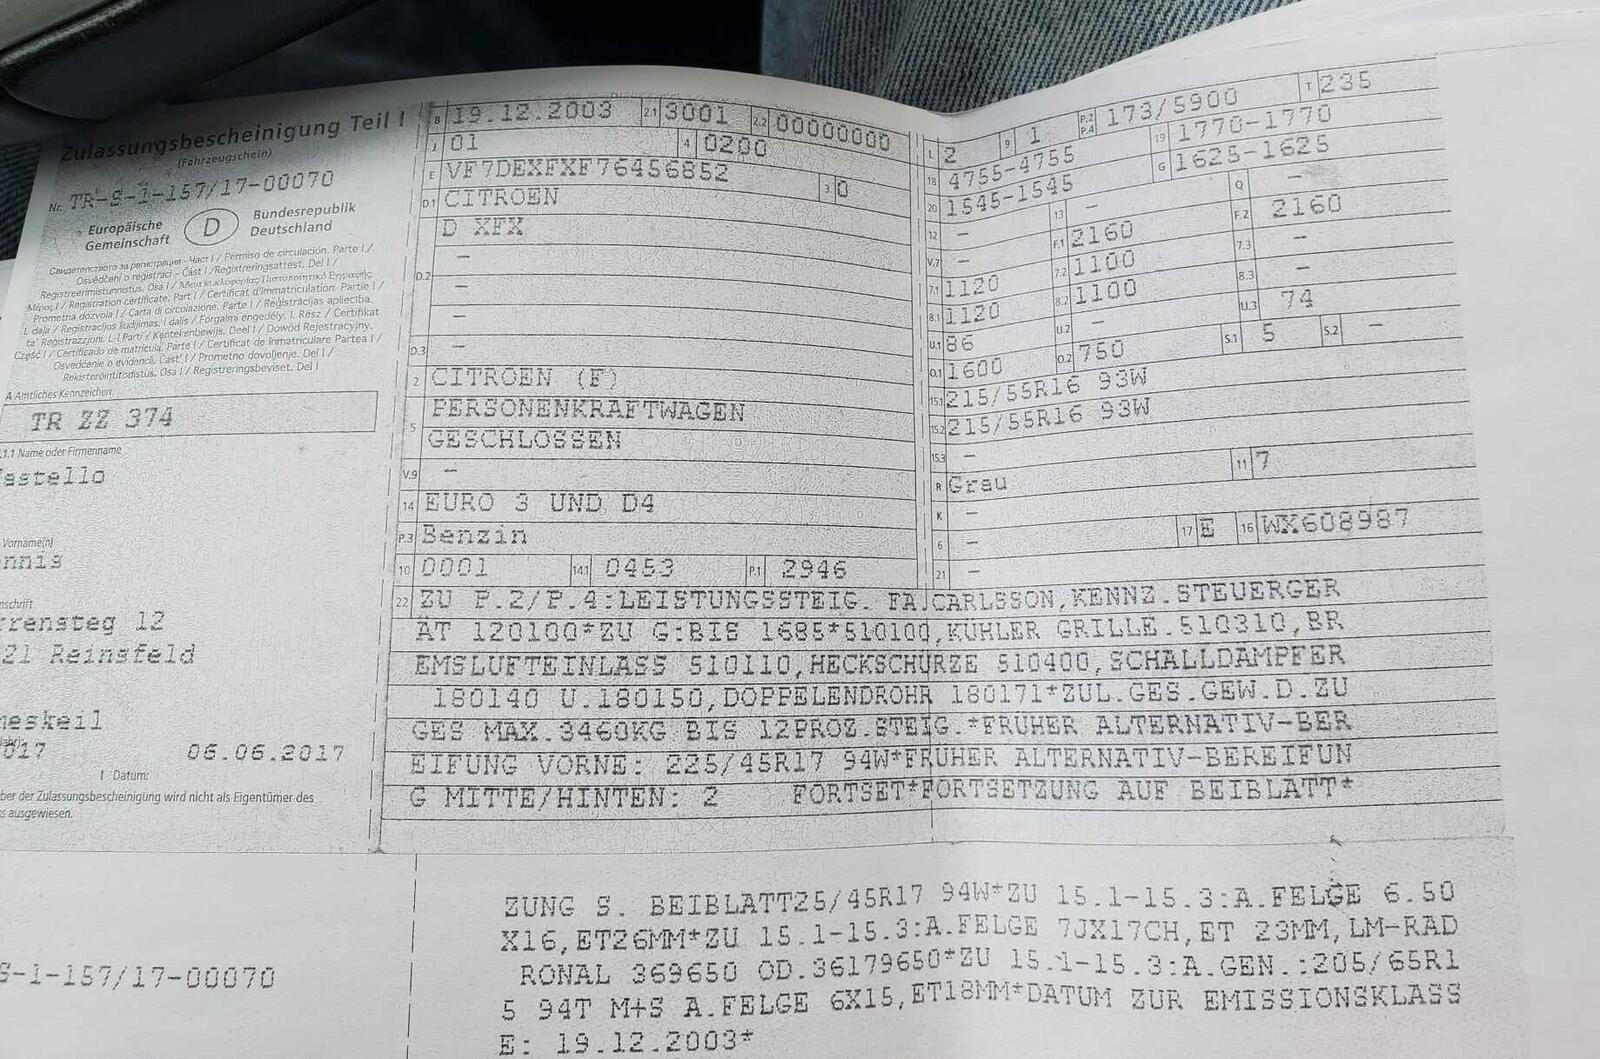 Zulassungsbescheinigung Teil I
(Fahrzeugschein)
Nr. TR-S-1-157/17-00070
Europäische Gemeinschaft
D
Bundesrepublik Deutschland
Свидетелството за регистрация - Част I / Permiso de circulación. Parte I /
Osvědčení o registraci - Část I / Registreringsattest. Del I /
Registreerimistunnistus. Osa I / Άδεια κυκλοφορίας. Πιστοποιητικό Εγγραφής.
Μέρος I / Registration certificate. Part I / Certificat d'immatriculation. Partie I /
Prometna dozvola I / Carta di circolazione. Parte I / Reģistrācijas apliecība.
I. daļa / Registracijos liudijimas. I dalis / Forgalmi engedély. I. Rész / Ċertifikat
ta' Reġistrazzjoni. L-I Parti / Kentekenbewijs. Deel I / Dowód Rejestracyjny.
Część I / Certificado de matrícula. Parte I / Certificat de înmatriculare Partea I /
Osvedčenie o evidencii. Časť I / Prometno dovoljenje. Del I /
Rekisteröintitodistus. Osa I / Registreringsbeviset. Del I
A Amtliches Kennzeichen
TR ZZ 374
.1.1 Name oder Firmenname
astello
Vorname(n)
nnis
nschrift
rrensteg 12
21 Reinsfeld
meskeil
017 06.06.2017
I Datum:
ber der Zulassungsbescheinigung wird nicht als Eigentümer des
s ausgewiesen.
B 19.12.2003 2.1 3001 2.2 00000000
J 01 4 0200
E VF7DEXFXF76456852 3 0
D.1 CITROEN
D XFX
–
D.2 –
–
D.3 –
2 CITROEN (F)
5 PERSONENKRAFTWAGEN
GESCHLOSSEN
V.9 –
14 EURO 3 UND D4
P.3 Benzin
10 0001 14.1 0453 P.1 2946
L 2 9 1 P.2 P.4 173/5900 T 235
18 4755-4755 19 1770-1770
20 1545-1545 G 1625-1625
12 – 13 – Q –
V.7 – F.1 2160 F.2 2160
7.1 1120 7.2 1100 7.3 –
8.1 1120 8.2 1100 8.3 –
U.1 86 U.2 – U.3 74
O.1 1600 O.2 750 S.1 5 S.2 –
15.1 215/55R16 93W
15.2 215/55R16 93W
15.3 –
R Grau 11 7
K –
6 – 17 E 16 WX608987
21 –
22 ZU P.2/P.4:LEISTUNGSSTEIG. FA.CARLSSON,KENNZ.STEUERGER
ÄT 120100*ZU G:BIS 1685*510100,KÜHLER GRILLE.510310,BR
EMSLUFTEINLASS 510110,HECKSCHÜRZE 510400,SCHALLDÄMPFER
180140 U.180150,DOPPELENDROHR 180171*ZUL.GES.GEW.D.ZU
GES MAX.3460KG BIS 12PROZ.STEIG.*FRÜHER ALTERNATIV-BER
EIFUNG VORNE: 225/45R17 94W*FRÜHER ALTERNATIV-BEREIFUN
G MITTE/HINTEN: 2 FORTSET*FORTSETZUNG AUF BEIBLATT*
S-1-157/17-00070
ZUNG S. BEIBLATT25/45R17 94W*ZU 15.1-15.3:A.FELGE 6.50
X16,ET26MM*ZU 15.1-15.3:A.FELGE 7JX17CH,ET 23MM,LM-RAD
RONAL 369650 OD.36179650*ZU 15.1-15.3:A.GEN.:205/65R1
5 94T M+S A.FELGE 6X15,ET18MM*DATUM ZUR EMISSIONSKLASS
E: 19.12.2003*